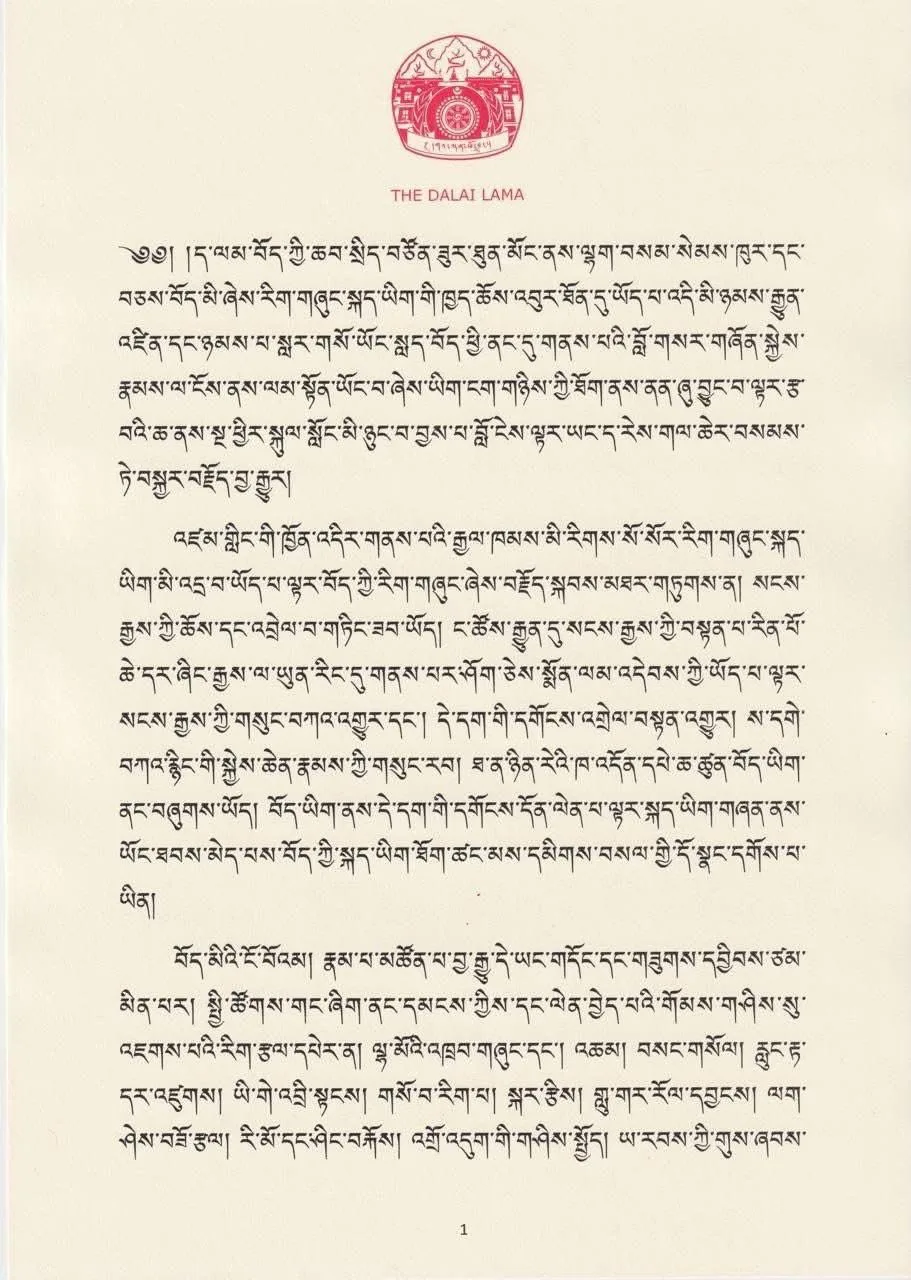 THE DALAI LAMA
༄༅། །ད་ལམ་བོད་ཀྱི་ཆབ་སྲིད་བཙོན་ཟུར་ཐུན་མོང་ནས་ལྷག་བསམ་སེམས་ཁུར་དང་
བཅས་བོད་མི་ཞེས་རིག་གཞུང་སྐད་ཡིག་གི་ཁྱད་ཆོས་འབུར་ཐོན་དུ་ཡོད་པ་འདི་མི་ཉམས་རྒྱུན་
འཛིན་དང་ཉམས་པ་སླར་གསོ་ཡོང་སླད་བོད་ཕྱི་ནང་དུ་གནས་པའི་བློ་གསར་གཞོན་སྐྱེས་
རྣམས་ལ་ངོས་ནས་ལམ་སྟོན་ཡོང་བ་ཞེས་ཡིག་ངག་གཉིས་ཀྱི་ཐོག་ནས་ནན་ཞུ་བྱུང་བ་ལྟར་རྩ
བའི་ཆ་ནས་སྔ་ཕྱིར་སྐུལ་སློང་མི་ཉུང་བ་བྱས་པ་བློ་ངེས་ལྟར་ཡང་ད་རེས་གལ་ཆེར་བསམས་
ཏེ་བསྐྱར་བརྗོད་བྱ་རྒྱུར།
འཛམ་གླིང་གི་ཁྱོན་འདིར་གནས་པའི་རྒྱལ་ཁམས་མི་རིགས་སོ་སོར་རིག་གཞུང་སྐད་
ཡིག་མི་འདྲ་བ་ཡོད་པ་ལྟར་བོད་ཀྱི་རིག་གཞུང་ཞེས་བརྗོད་སྐབས་མཐར་གཏུགས་ན། སངས་
རྒྱས་ཀྱི་ཆོས་དང་འབྲེལ་བ་གཏིང་ཟབ་ཡོད། ང་ཚོས་རྒྱུན་དུ་སངས་རྒྱས་ཀྱི་བསྟན་པ་རིན་པོ་
ཆེ་དར་ཞིང་རྒྱས་ལ་ཡུན་རིང་དུ་གནས་པར་ཤོག་ཅེས་སྨོན་ལམ་འདེབས་ཀྱི་ཡོད་པ་ལྟར་
སངས་རྒྱས་ཀྱི་གསུང་བཀའ་འགྱུར་དང་། དེ་དག་གི་དགོངས་འགྲེལ་བསྟན་འགྱུར། ས་དགེ་
བཀའ་རྙིང་གི་སྐྱེས་ཆེན་རྣམས་ཀྱི་གསུང་རབ། ཐ་ན་ཉིན་རེའི་ཁ་འདོན་དཔེ་ཆ་ཚུན་བོད་ཡིག་
ནང་བཞུགས་ཡོད། བོད་ཡིག་ནས་དེ་དག་གི་དགོངས་དོན་ལེན་པ་ལྟར་སྐད་ཡིག་གཞན་ནས་
ཡོང་ཐབས་མེད་པས་བོད་ཀྱི་སྐད་ཡིག་ཐོག་ཚང་མས་དམིགས་བསལ་གྱི་དོ་སྣང་དགོས་པ་
ཡིན།
བོད་མིའི་ངོ་བོའམ། རྣམ་པ་མཚོན་པ་བྱ་རྒྱུ་དེ་ཡང་གདོང་དང་གཟུགས་དབྱིབས་ཙམ་
མིན་པར། སྤྱི་ཚོགས་གང་ཞིག་ནང་དམངས་ཀྱིས་དང་ལེན་བྱེད་པའི་གོམས་གཤིས་སུ་
འཇགས་པའི་རིག་རྩལ་དཔེར་ན། ལྷ་མོའི་འཁྲབ་གཞུང་དང་། འཆམ། བསང་གསོལ། རླུང་རྟ་
དར་འཛུགས། ཡི་གེ་འབྲི་སྟངས། གསོ་བ་རིག་པ། སྐར་རྩིས། གླུ་གར་རོལ་དབྱངས། ལག་
ཤེས་བཟོ་རྩལ། རི་མོ་དང་ཤིང་བརྐོས། འགྲོ་འདུག་གི་གཤིས་སྤྱོད། ཡ་རབས་ཀྱི་གུས་ཞབས་
1